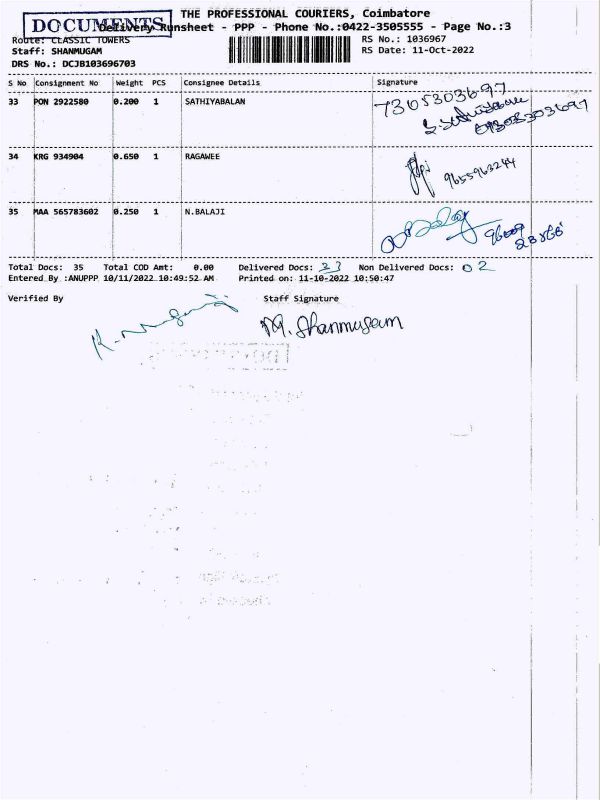 DOCUMENTS
THE PROFESSIONAL COURIERS, Coimbatore
Delivery Runsheet - PPP - Phone No.:0422-3505555 - Page No.:3
Route: CLASSIC TOWERS RS No.: 1036967
Staff: SHANMUGAM RS Date: 11-Oct-2022
DRS No.: DCJB103696703
S No Consignment No Weight PCS Consignee Details Signature
33 PON 2922580 0.200 1 SATHIYABALAN 7305303697
34 KRG 934904 0.650 1 RAGAWEE 9655963244
35 MAA 565783602 0.250 1 N.BALAJI
Total Docs: 35 Total COD Amt: 0.00 Delivered Docs: 33 Non Delivered Docs: 02
Entered By :ANUPPP 10/11/2022 10:49:52 AM Printed on: 11-10-2022 10:50:47
Verified By Staff Signature
M. Shanmugam